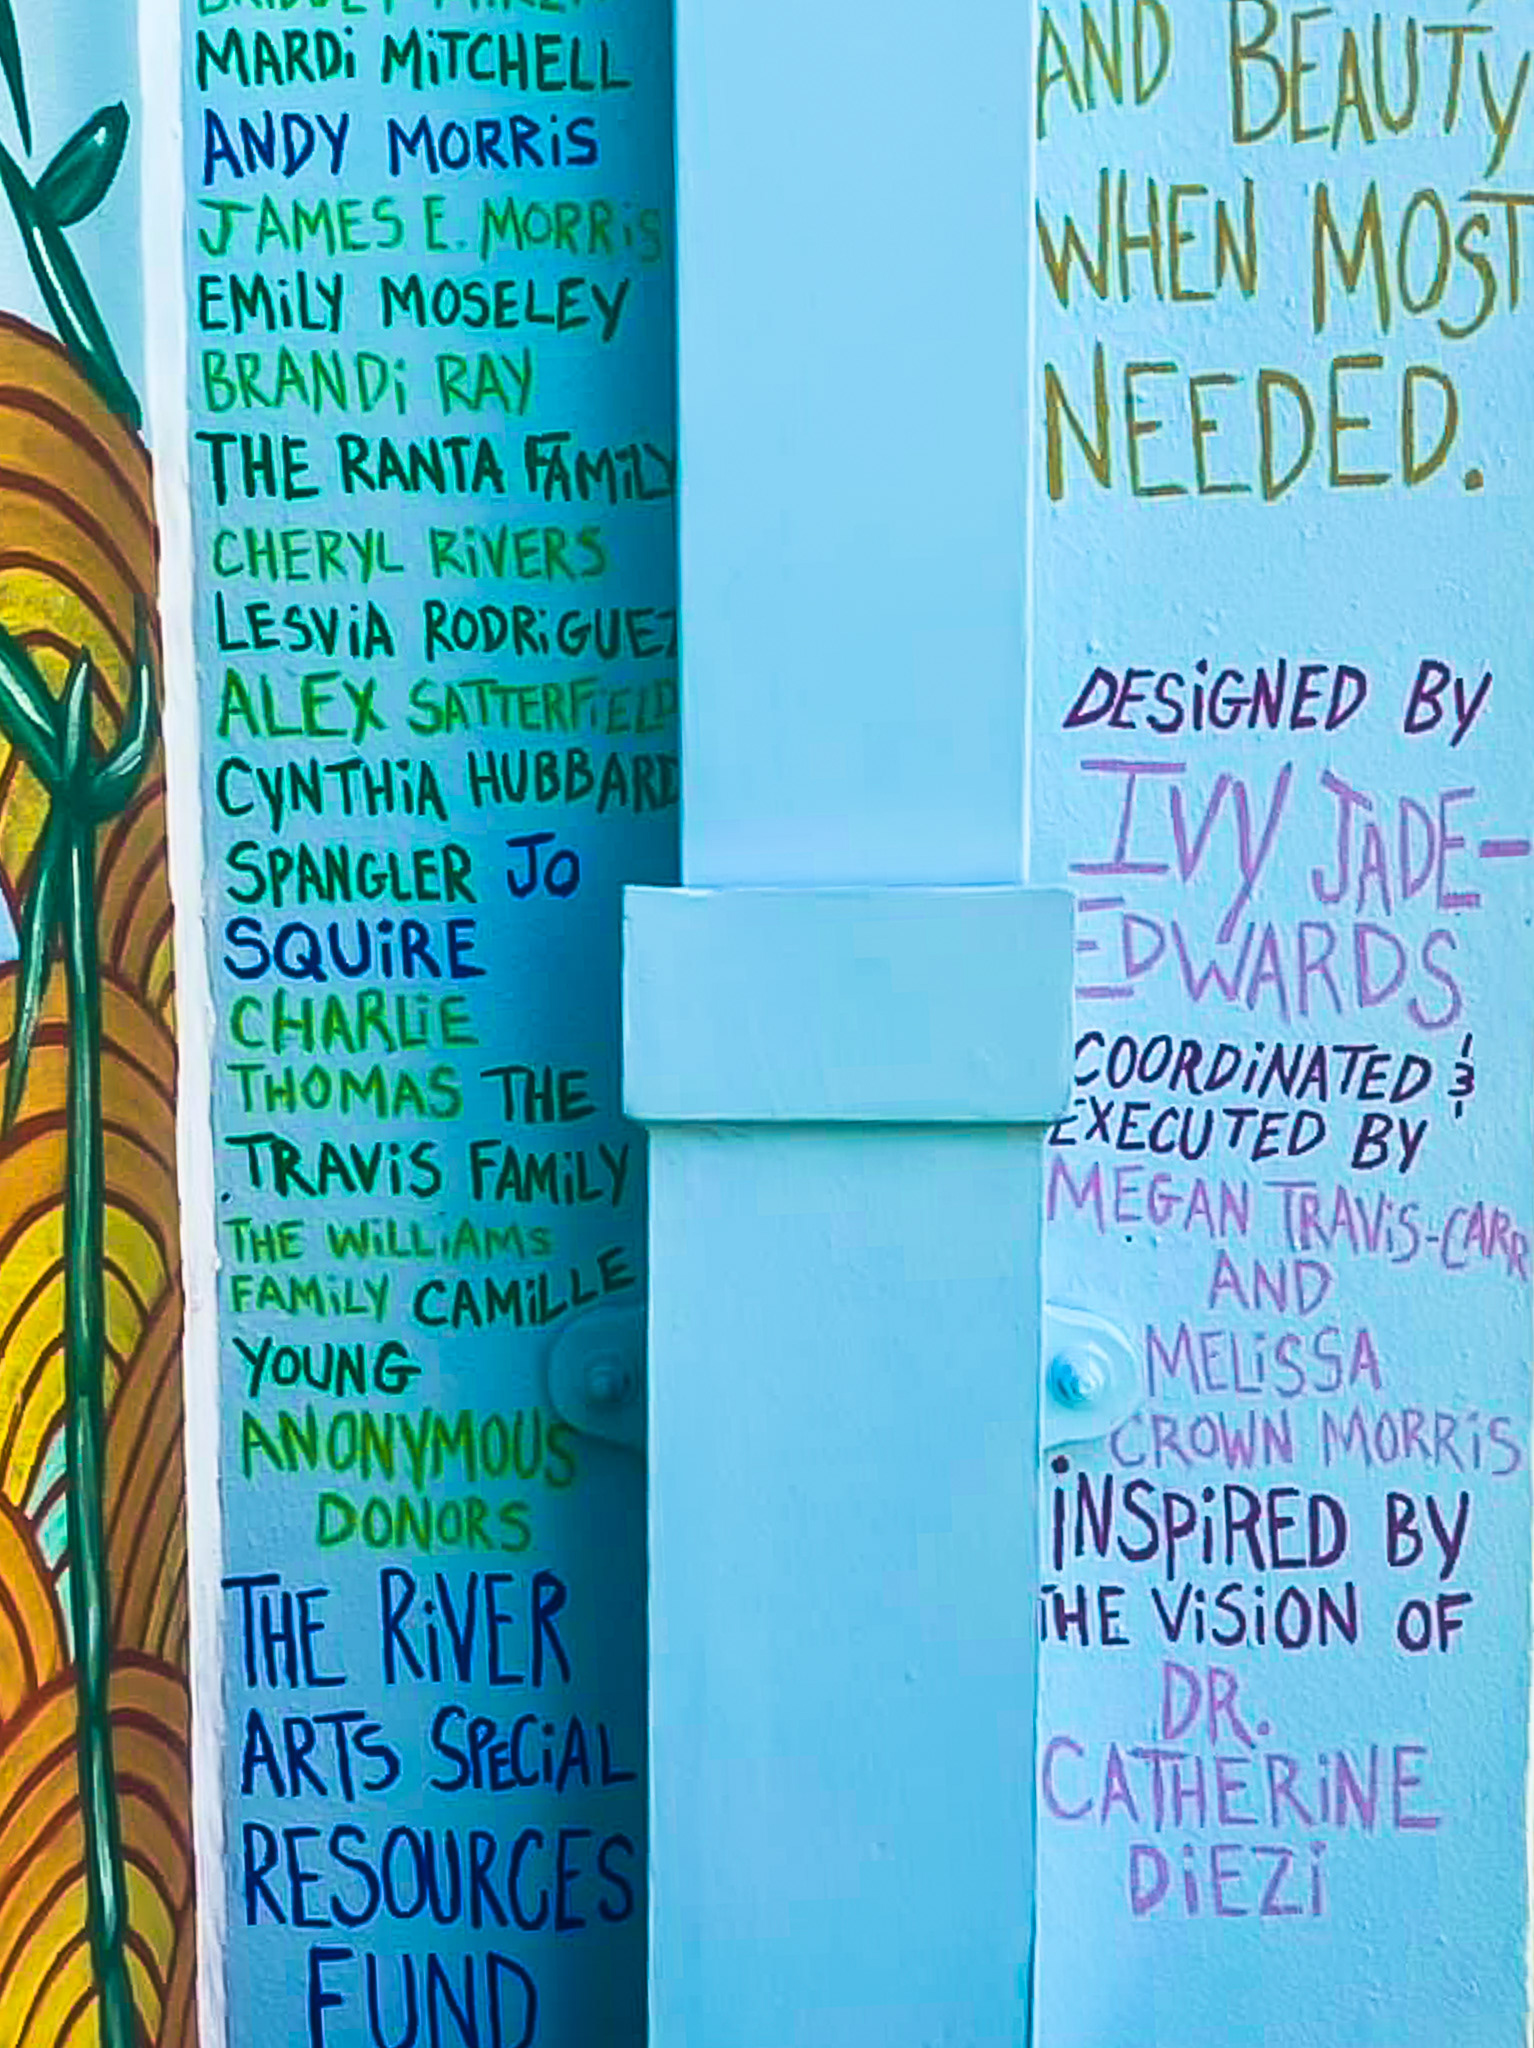 MARDi MiTCHELL
ANDY MORRiS
JAMES E. MORRiS
EMiLY MOSELEY
BRANDi RAY
THE RANTA FAMiLY
CHERYL RiVERS
LESViA RODRiGUEZ
ALEX SATTERFiELD
CYNTHiA HUBBARD
SPANGLER JO
SQUiRE
CHARLiE
THOMAS THE
TRAViS FAMiLY
THE WiLLiAMS
FAMiLY CAMiLLE
YOUNG
ANONYMOUS
DONORS
THE RiVER
ARTS SPECiAL
RESOURCES
FUND
AND BEAUTY
WHEN MOST
NEEDED.
DESiGNED BY
IVY JADE-
EDWARDS
COORDiNATED &
EXECUTED BY
MEGAN TRAViS-CARR
AND
MELiSSA
CROWN MORRiS
iNSPiRED BY
THE ViSiON OF
DR.
CATHERiNE
DiEZi